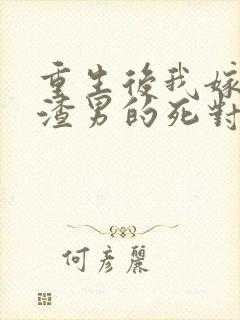 重生後我嫁
渣男的死對
何彥麗